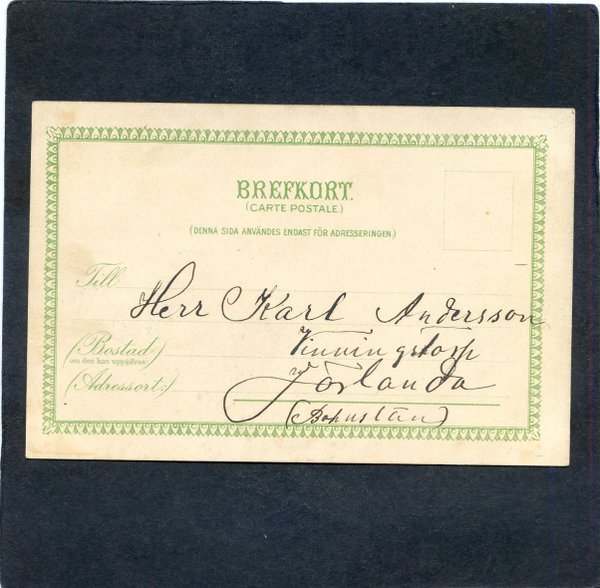 BREFKORT.
(CARTE POSTALE.)
(DENNA SIDA ANVÄNDES ENDAST FÖR ADRESSERINGEN.)
Till
Herr Karl Andersson
(Bostad)
om den kan uppgifvas:
Vinningstorp
(Adressort:)
Jörlanda
(Bohuslän)